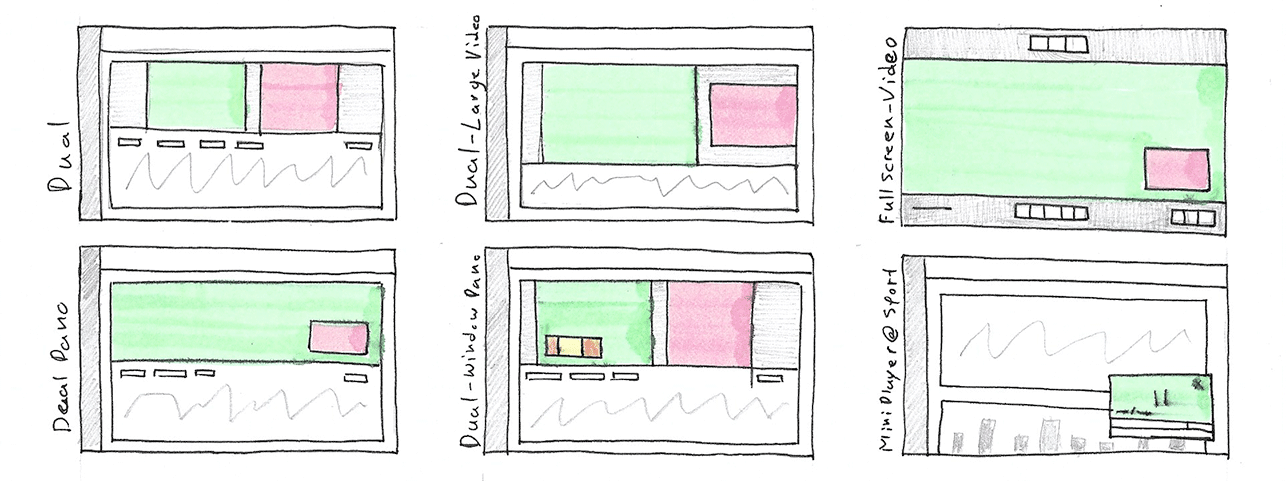 Dual
Dual-Large Video
Full Screen-Video
Dual Pano
Dual-Window Pano
Mini Player @ Sport